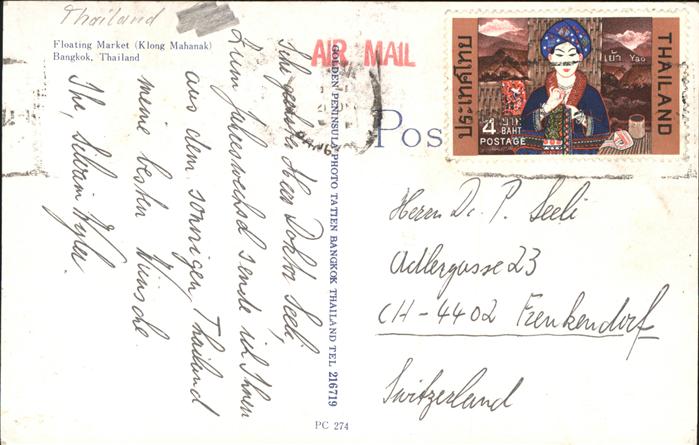 Thailand
Floating Market (Klong Mahanak)
Bangkok, Thailand
AIR MAIL
Sehr geehrter Herr Doktor Seeli,
Zum Jahreswechsel sende ich Ihnen
aus dem sonnigen Thailand
meine besten Wünsche.
Ihr,
GOLDEN PENINSULA PHOTO TATIEN BANGKOK THAILAND TEL 216719
PC 274
Pos
ประเทศไทย
THAILAND
เย้า Yao
4 บาท
BAHT
POSTAGE
Herrn Dr. P. Seeli
Adlergasse 23
CH-4402 Frenkendorf
Switzerland